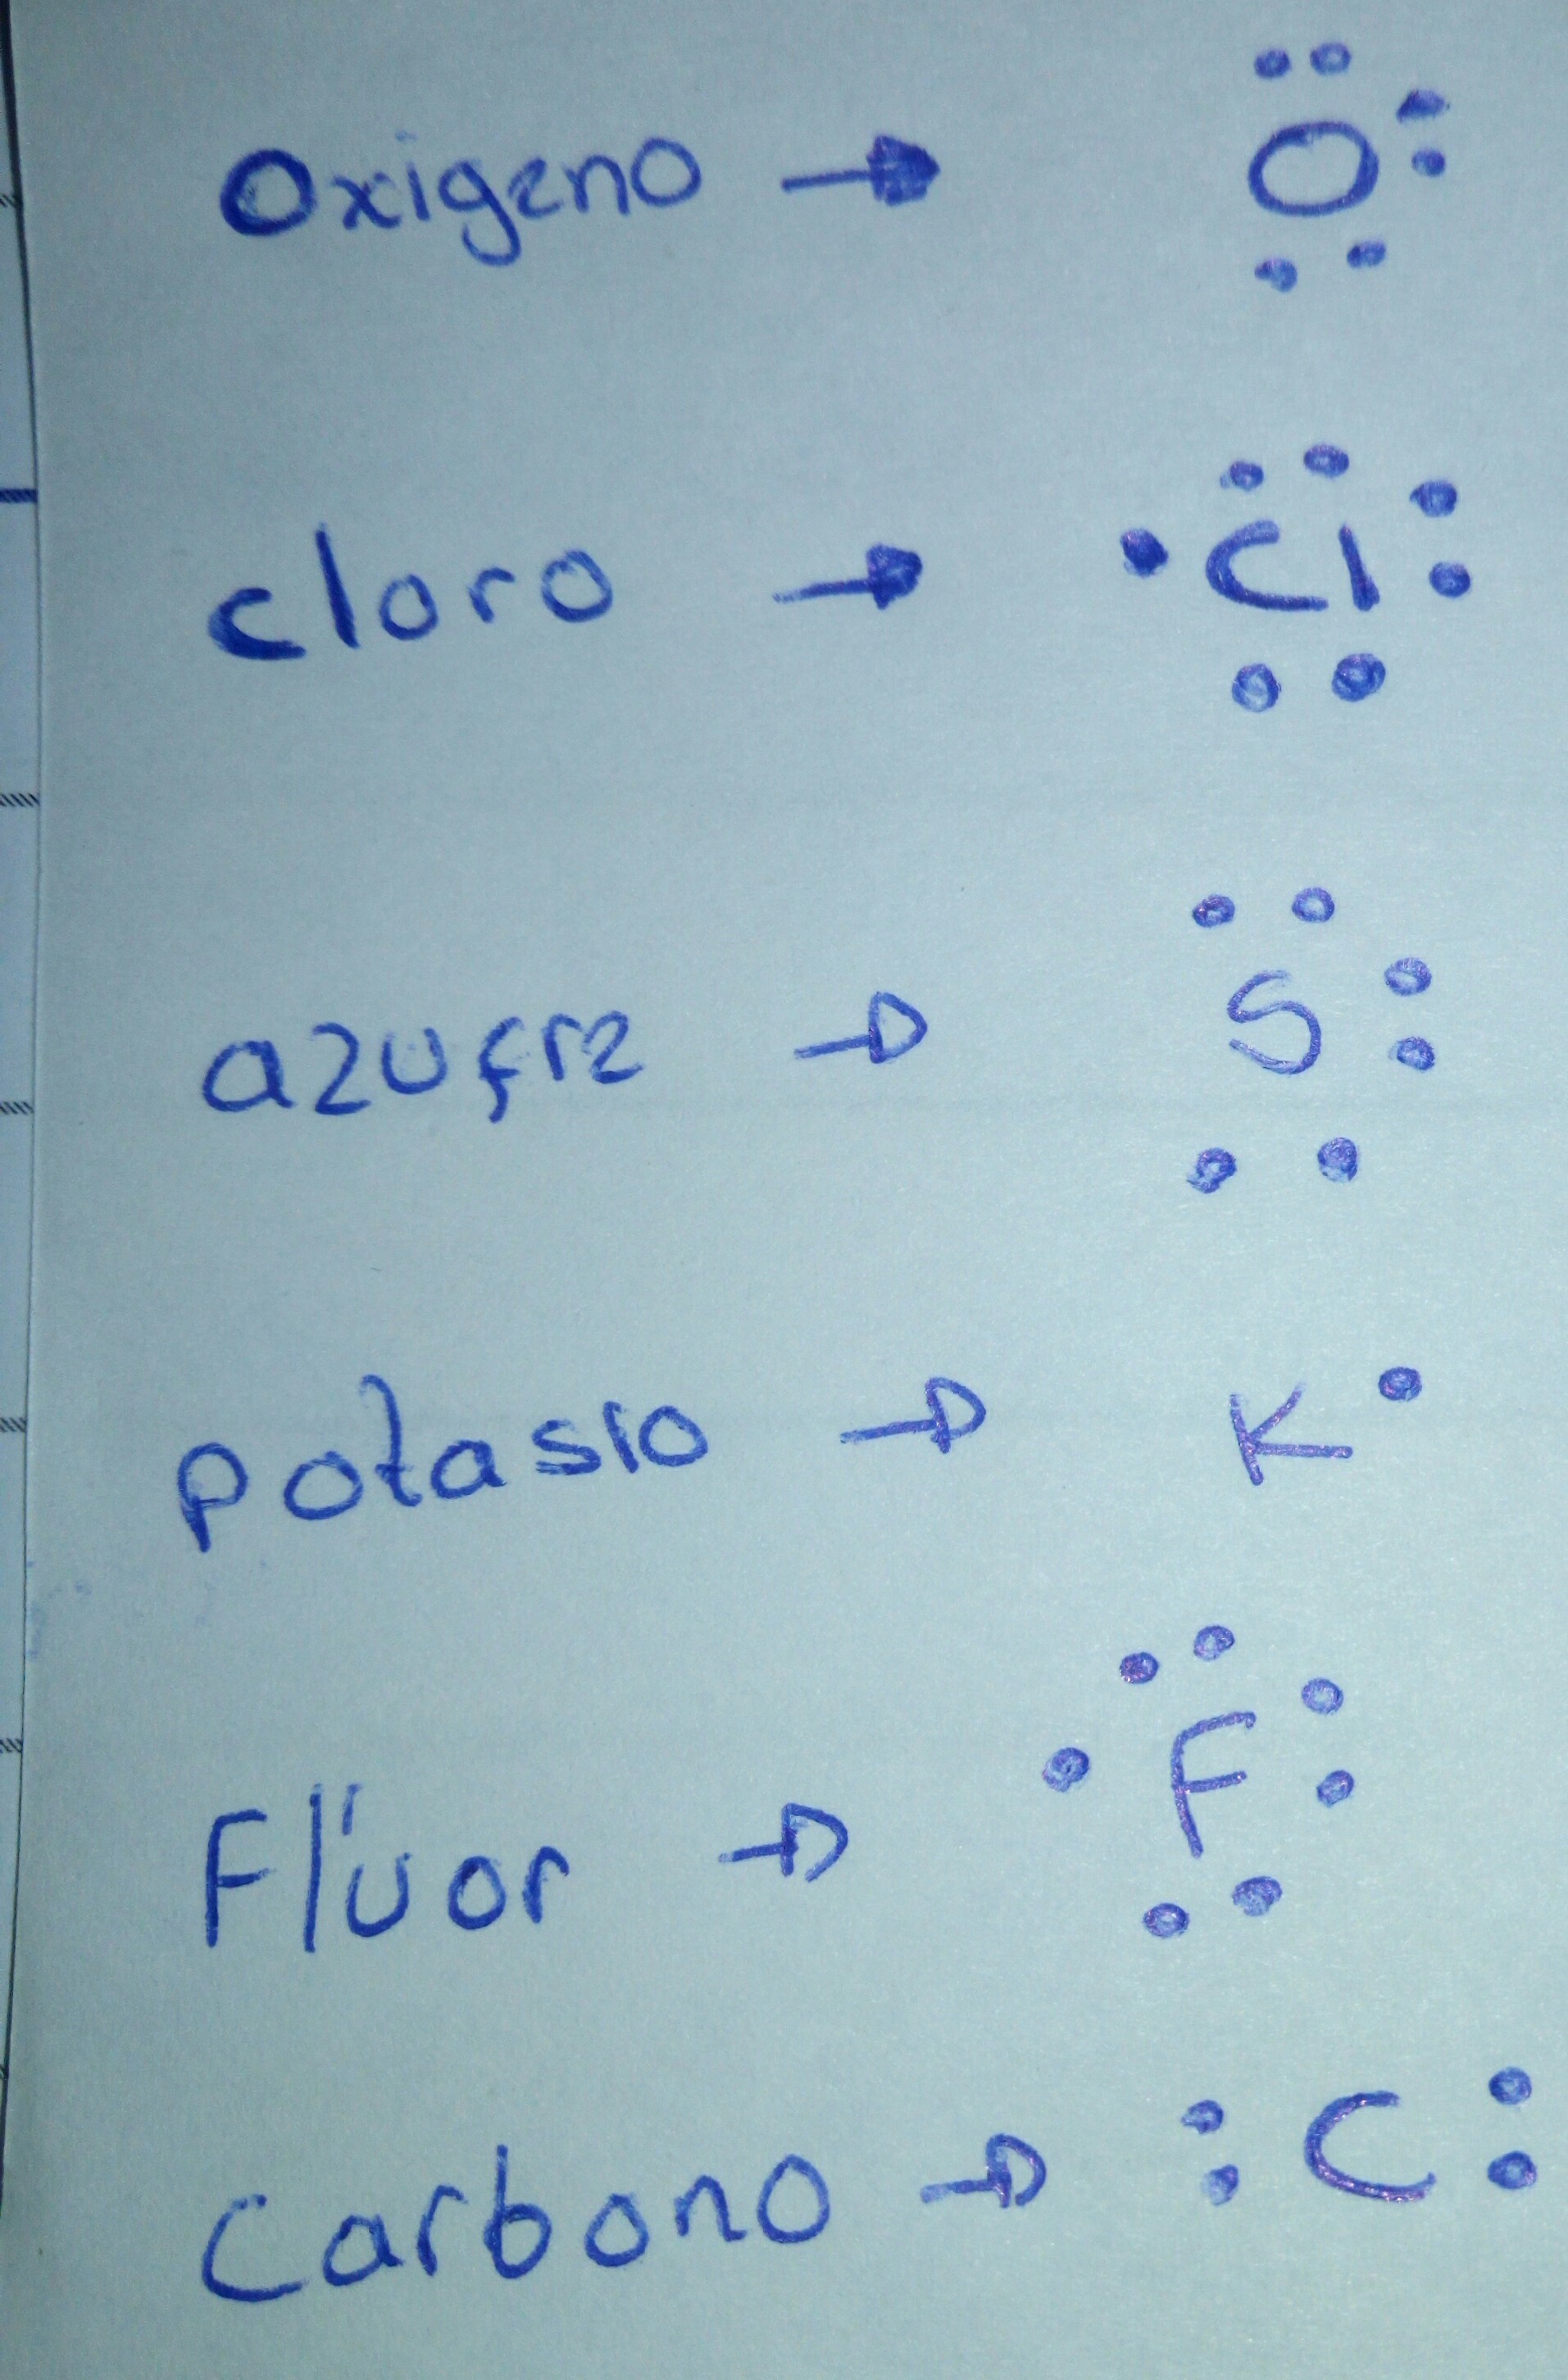 Oxigeno → O
cloro → Cl
azufre → S
potasio → K
Flúor → F
Carbono → C